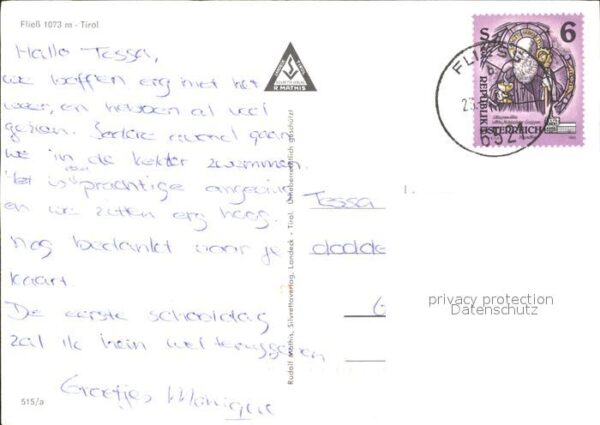 Fließ 1073 m - Tirol
Hallo Tessa,
we boffen erg met het
weer, en hebben al veel
gezien. Iedere avond gaan
we in de kelder zwemmen.
Het is een prachtige
en we zitten erg hoog.
Nog bedankt voor je
kaart.
De eerste schooldag
zal ik hem wel terugzien
Groetjes Monique
515/a
R. MATHIS
Rudolf Mathis, Silvrettaverlag, Landeck - Tirol. Urheberrechtlich geschützt!
Tessa
6
REPUBLIK
ÖSTERREICH
privacy protection
Datenschutz